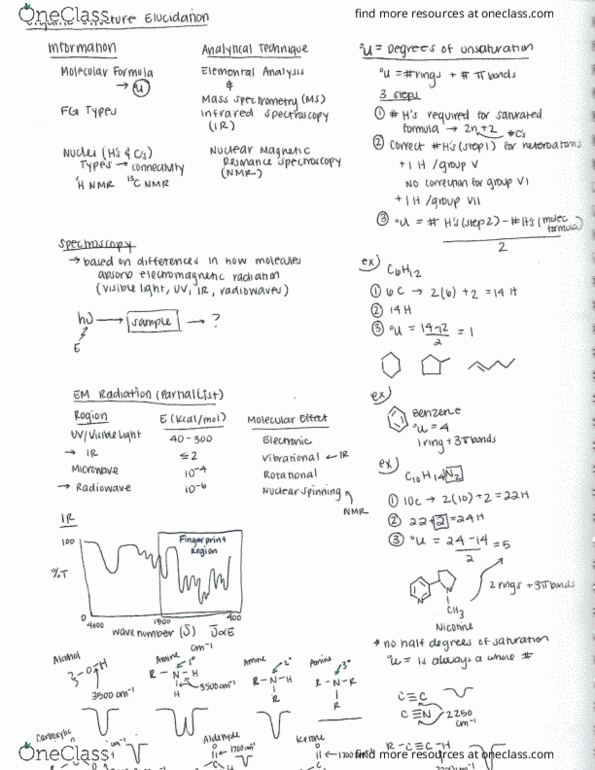 OneClass
find more resources at oneclass.com
Organic Structure Elucidation
Information
Analytical Technique
Molecular Formula
→ °U
Elemental Analysis
&
Mass Spectrometry (MS)
FG Types
Infrared Spectroscopy
(IR)
Nuclei (H's & C's)
Types → connectivity
¹H NMR ¹³C NMR
Nuclear Magnetic
Resonance Spectroscopy
(NMR)
Spectroscopy
→ based on differences in how molecules
absorb electromagnetic radiation
(visible light, UV, IR, radiowaves)
hυ → sample → ?
E
EM Radiation (Partial List)
Region
E (Kcal/mol)
Molecular Effect
UV/Visible Light
40-300
Electronic
→ IR
≤2
Vibrational ← IR
Microwave
10⁻⁴
Rotational
→ Radiowave
10⁻⁶
Nuclear Spinning
NMR
IR
100
%T
0
Fingerprint
Region
4000
1500
400
wave number (ῡ) ῡ∝E
cm⁻¹
Alcohol
O-H
3500 cm⁻¹
Amine 1°
R-N-H
H
3500 cm⁻¹
Amine 2°
R-N-H
R
Amine 3°
R-N-R
R
Carboxylic
cm⁻¹
Aldehyde
O
1700 cm⁻¹
Ketone
O
°U = Degrees of unsaturation
°U = # rings + # π bonds
3 steps
① # H's required for saturated
formula → 2n+2
#C's
② Correct # H's (step 1) for heteroatoms
+1 H/group V
NO correction for group VI
+1 H/group VII
③ °U = # H's (step 2) - # H's (molec formula)
2
ex)
C₆H₁₂
① 6C → 2(6)+2 = 14 H
② 14H
③ °U = 14-12 = 1
2
ex)
Benzene
°U = 4
1 ring + 3π bonds
ex)
C₁₀H₁₄N₂
① 10C → 2(10)+2 = 22H
② 22+2 = 24H
③ °U = 24-14 = 5
2
2 rings + 3π bonds
N
N
CH₃
Nicotine
* no half degrees of saturation
°U = is always a whole #
C≡C
C≡N
2250
cm⁻¹
R-C≡C-H
OneClass
find more resources at oneclass.com